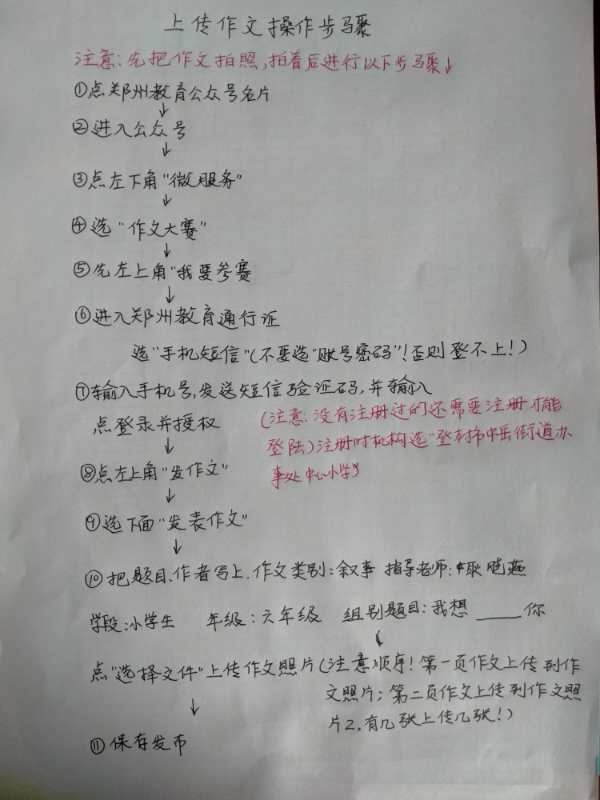 上传作文操作步骤
注意:先把作文拍照,拍着后进行以下步骤↓
①点郑州教育公众号名片
↓
②进入公众号
↓
③点左下角"微服务"
↓
④选"作文大赛"
↓
⑤先左上角"我要参赛
↓
⑥进入郑州教育通行证
选"手机短信"(不要选"账号密码"!否则登不上!)
⑦输入手机号,发送短信验证码,并输入
点登录并授权
(注意:没有注册过的还需要注册才能
登陆)注册时机构选"登封市中岳街道办
事处中心小学"
↓
⑧点左上角"发作文"
↓
⑨选下面"发表作文"
↓
⑩把题目、作者写上、作文类别:叙事 指导老师:耿晓燕
学段:小学生 年级:六年级 组别题目:我想____你
↓
点"选择文件"上传作文照片(注意顺序!第一页作文上传到作
文照片;第二页作文上传到作文照
片2,有几张上传几张!)
↓
⑪保存发布